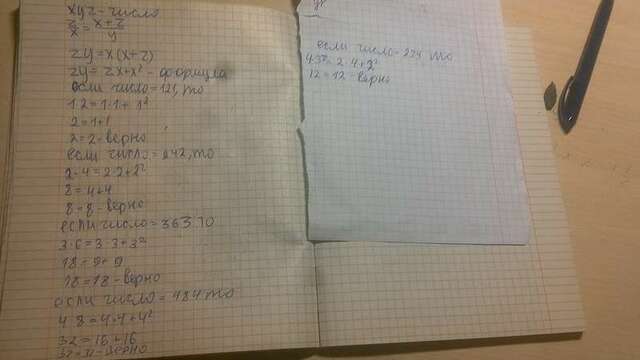 xyz - число
z/x = (x+z)/y
zy = x(x+z)
zy = zx+x² - формула
если число = 121, то
1·2 = 1·1 + 1²
2 = 1+1
2 = 2 - верно
если число = 242, то
2·4 = 2·2+2²
8 = 4+4
8 = 8 - верно
если число = 363 то
3·6 = 3·3+3²
18 = 9+9
18 = 18 - верно
если число = 484 то
4·8 = 4·4+4²
32 = 16+16
32 = 32 - верно
если число = 234 то
4·3 = 2·4+2²
12 = 12 - верно